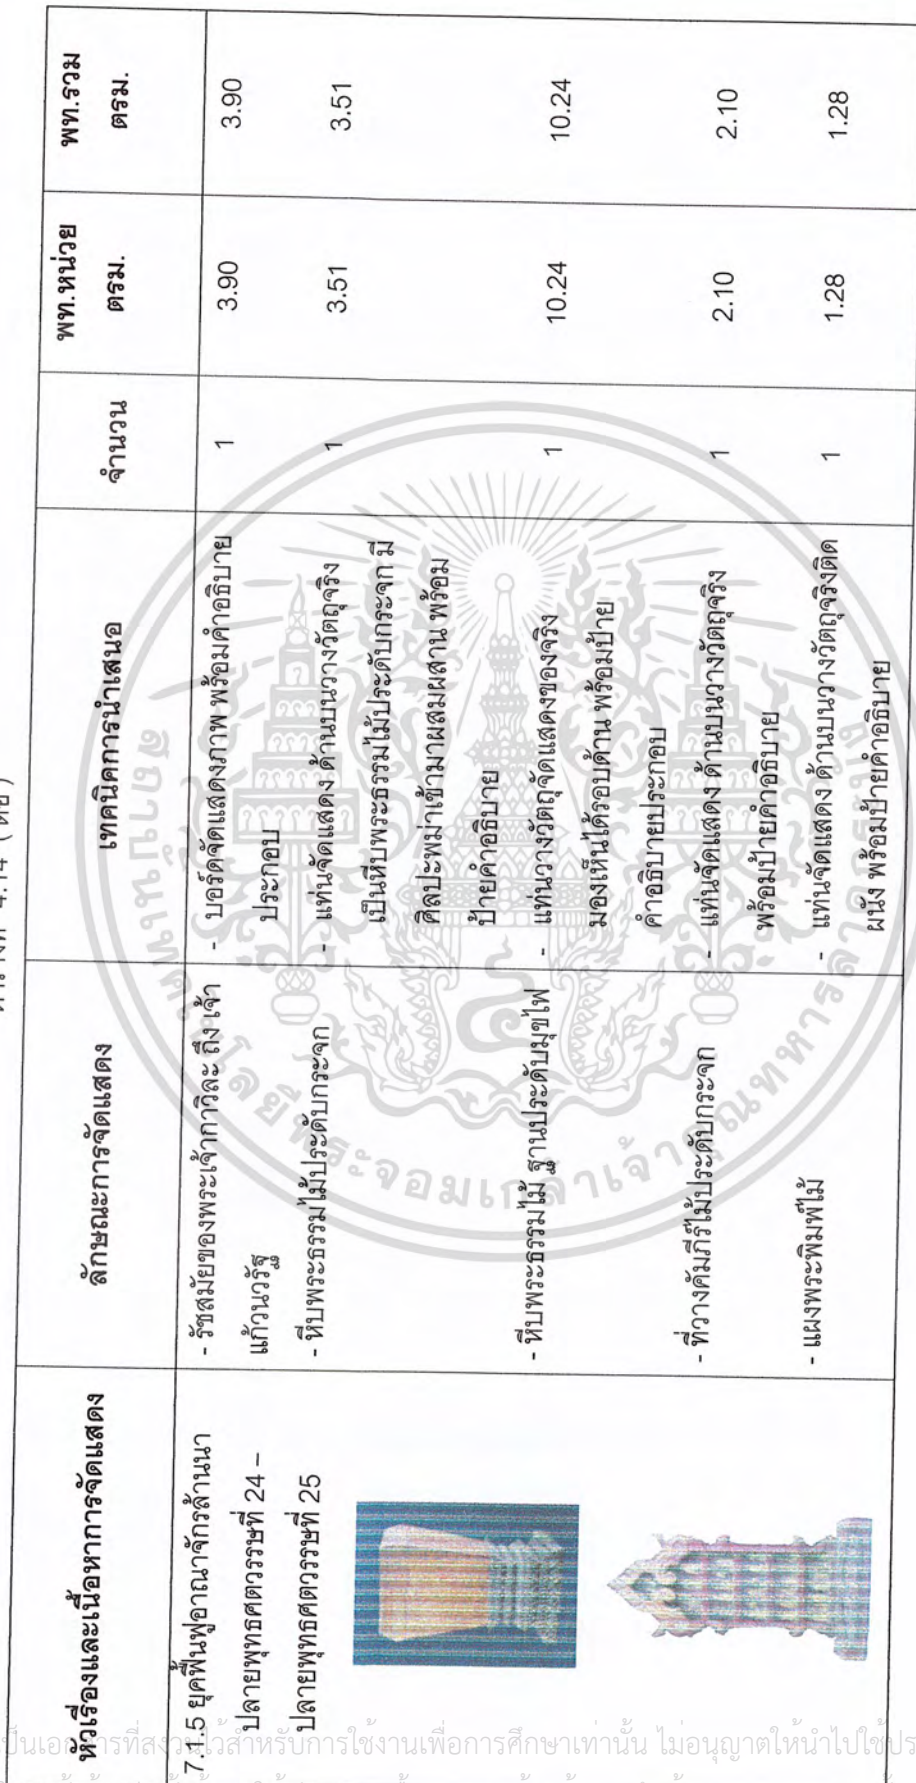 หัวเรื่องและเนื้อหาการจัดแสดง
ลักษณะการจัดแสดง
เทคนิคการนำเสนอ
จำนวน
พท.หน่วย
ตรม.
พท.รวม
ตรม.
7.1.5 ยุคฟื้นฟูอาณาจักรล้านนา
ปลายพุทธศตวรรษที่ 24 –
ปลายพุทธศตวรรษที่ 25
- รัชสมัยของพระเจ้ากาวิละ ถึง เจ้า
แก้วนวรัฐ
- บอร์ดจัดแสดงภาพ พร้อมคำอธิบาย
ประกอบ
1
3.90
3.90
- หีบพระธรรมไม้ประดับกระจก
- แท่นจัดแสดง ด้านบนวางวัตถุจริง
เป็นหีบพระธรรมไม้ประดับกระจก มี
ศิลปะพม่าเข้ามาผสมผสาน พร้อม
ป้ายคำอธิบาย
1
3.51
3.51
- หีบพระธรรมไม้ ฐานประดับมุขไฟ
- แท่นวางวัตถุจัดแสดงของจริง
มองเห็นได้รอบด้าน พร้อมป้าย
คำอธิบายประกอบ
1
10.24
10.24
- ที่วางคัมภีร์ไม้ประดับกระจก
- แท่นจัดแสดง ด้านบนวางวัตถุจริง
พร้อมป้ายคำอธิบาย
1
2.10
2.10
- แผงพระพิมพ์ไม้
- แท่นจัดแสดง ด้านบนวางวัตถุจริงติด
ผนัง พร้อมป้ายคำอธิบาย
1
1.28
1.28
สถาบันเทคโนโลยีพระจอมเกล้าเจ้าคุณทหารลาดกระบัง
สำหรับการใช้งานเพื่อการศึกษาเท่านั้น ไม่อนุญาตให้นำไปใช้